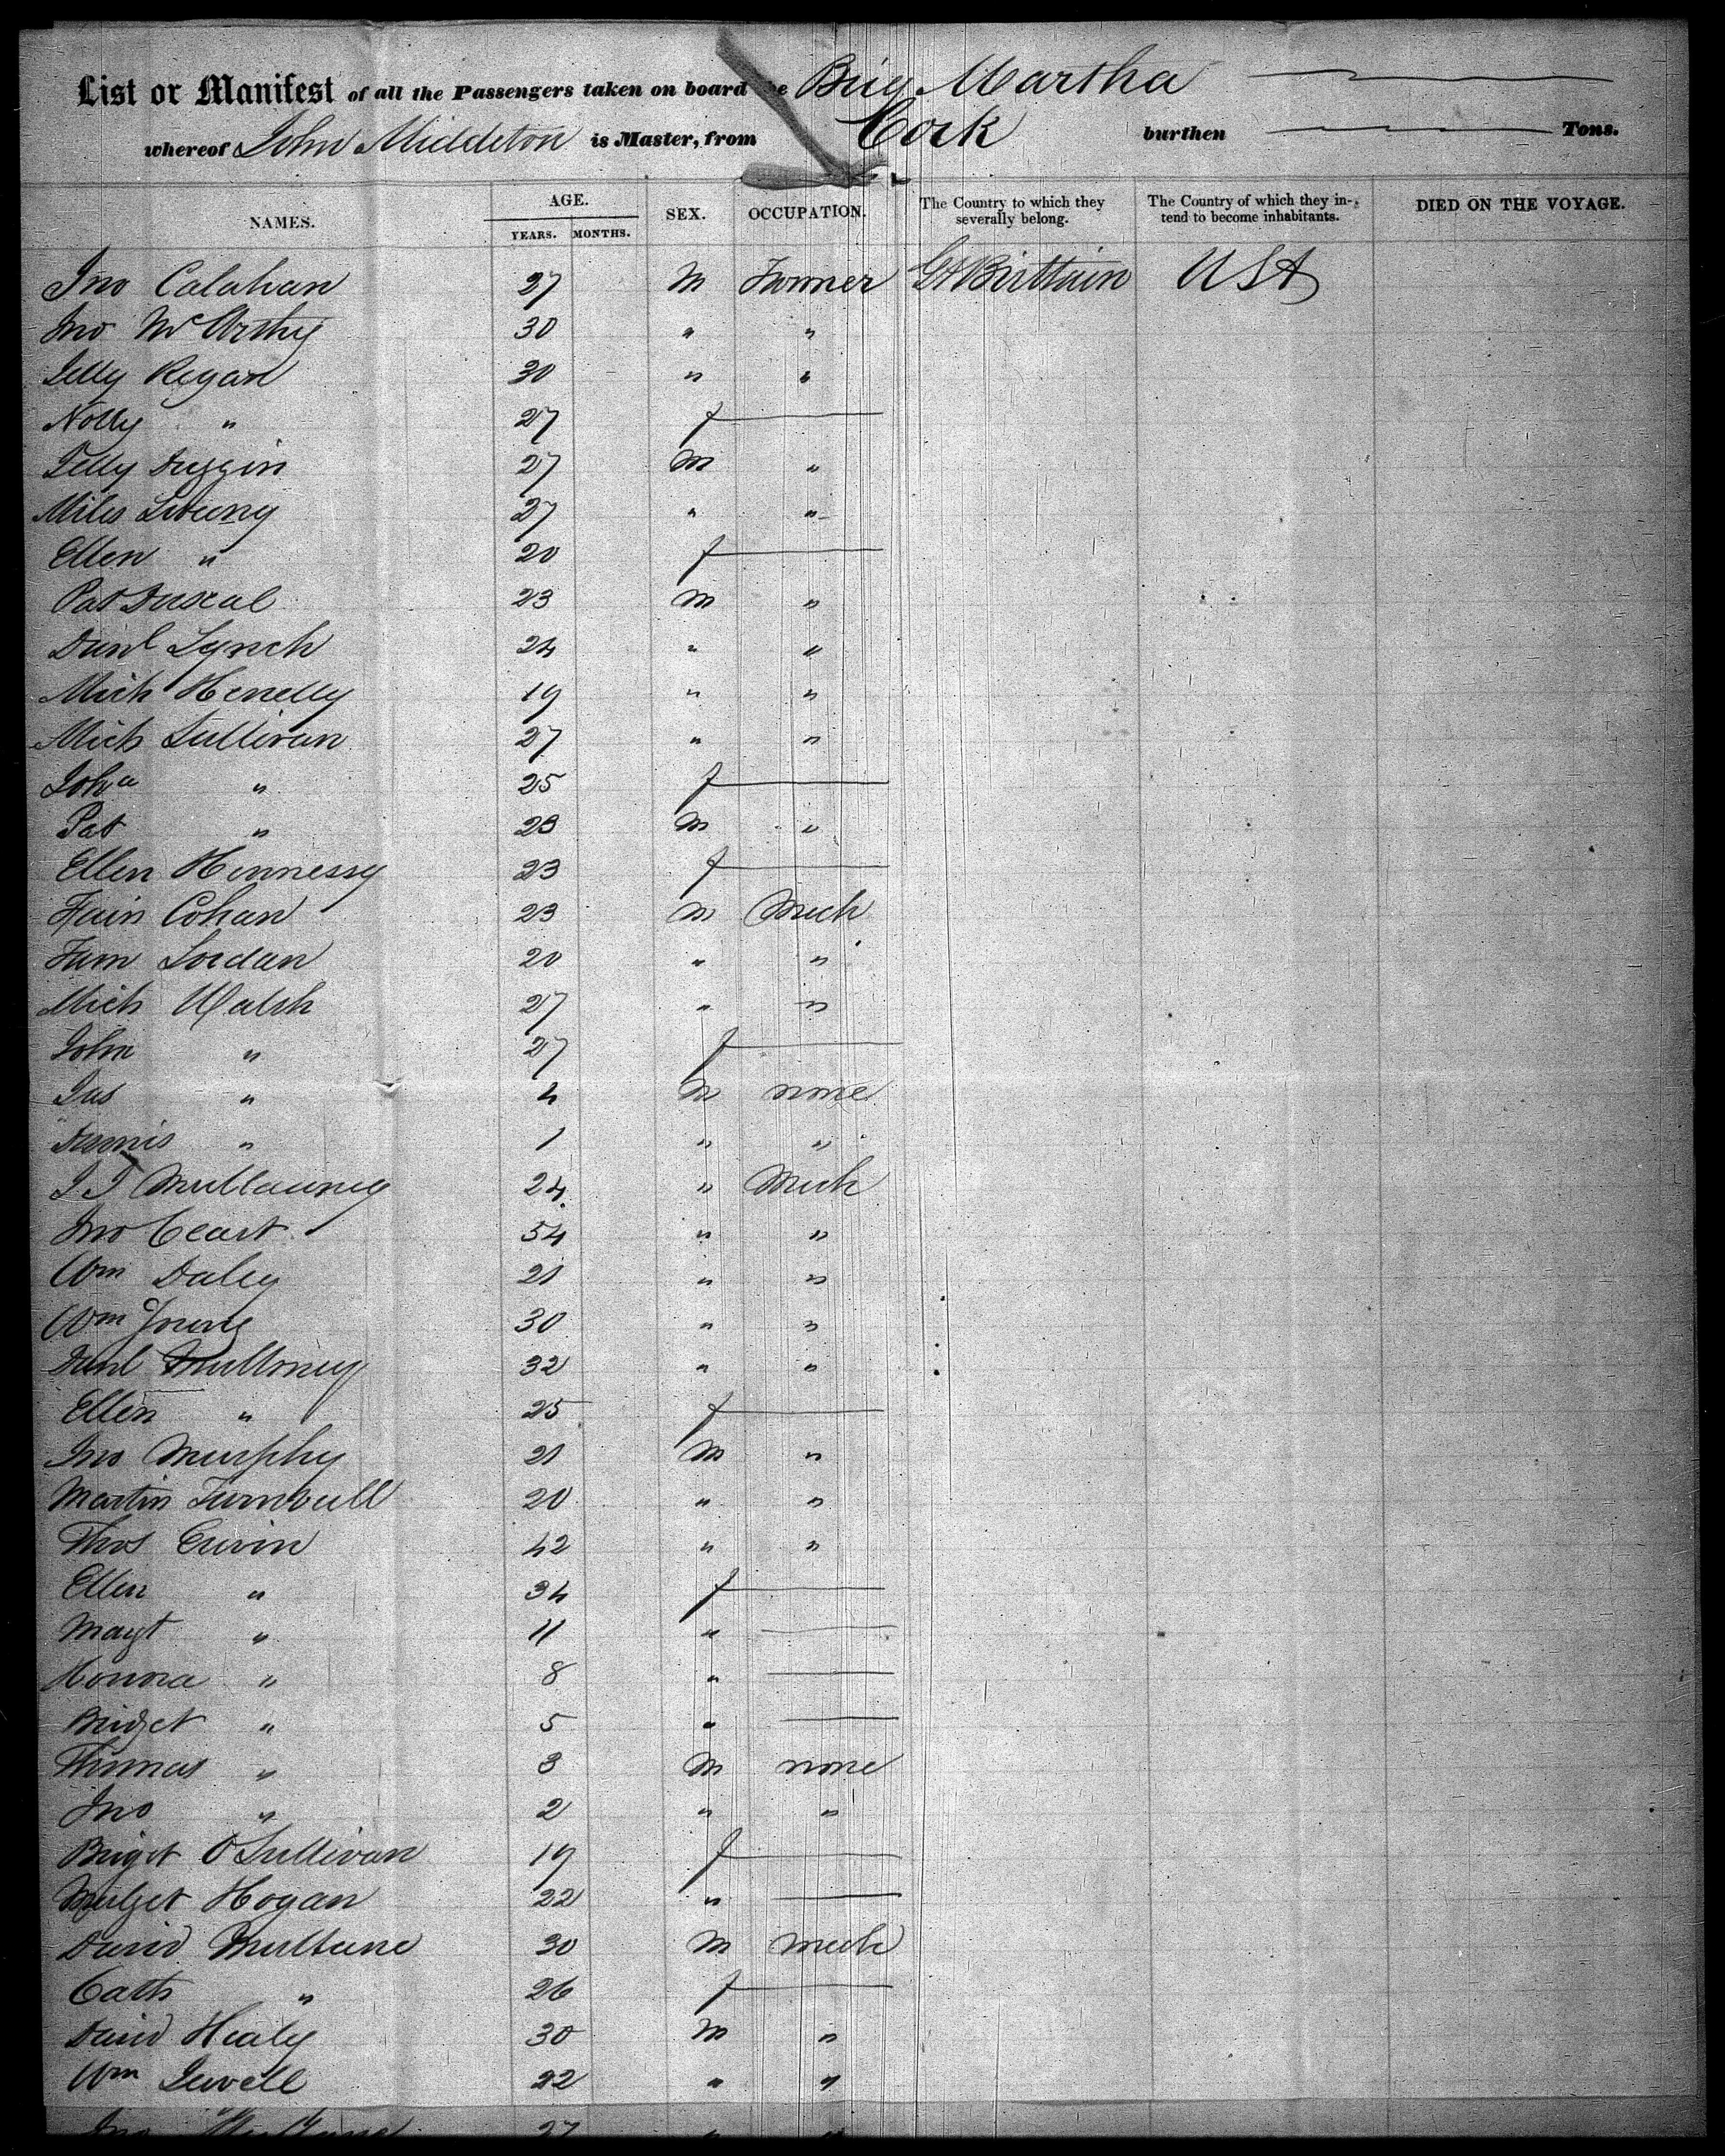 List or Manifest of all the Passengers taken on board Brig Martha
whereof John Middleton is Master, from Cork burthen Tons.
NAMES. AGE. YEARS. MONTHS. SEX. OCCUPATION. The Country to which they severally belong. The Country of which they intend to become inhabitants. DIED ON THE VOYAGE.
Jno Calahan 27 M Farmer Gt Brittain USA
Jno McArthy 30 " "
Regan 30 " "
Nolly " 27 f
Duggin 27 M "
Miles 27 " "
Ellen " 20 f
Pat 23 M "
Danl Lynch 24 " "
Mich Henelly 19 " "
Mich Sullivan 27 " "
Joha " 25 f
Pat " 23 M "
Ellen Hennessy 23 f
Cohan 23 M Mech
20 " "
Mich Walsh 27 " "
Joha " 27 f
Jas " 4 M none
Dennis " 1 " "
24 " Mech
Jno 54 " "
Wm Daley 21 " "
Wm Young 30 " "
Danl Mulloney 32 " "
Ellen " 25 f
Jno Murphy 21 M "
Martin Turnbull 20 " "
Thos 42 " "
Ellen " 34 f
Magt " 11 "
Honora " 8 "
Bridget " 5 "
Thomas " 3 M none
Jno " 2 " "
Briget O Sullivan 19 f
Hogan 22 "
David 30 M mech
Cath " 26 f
David Healy 30 M "
Wm Jewell 22 " "
Jno 27 " "